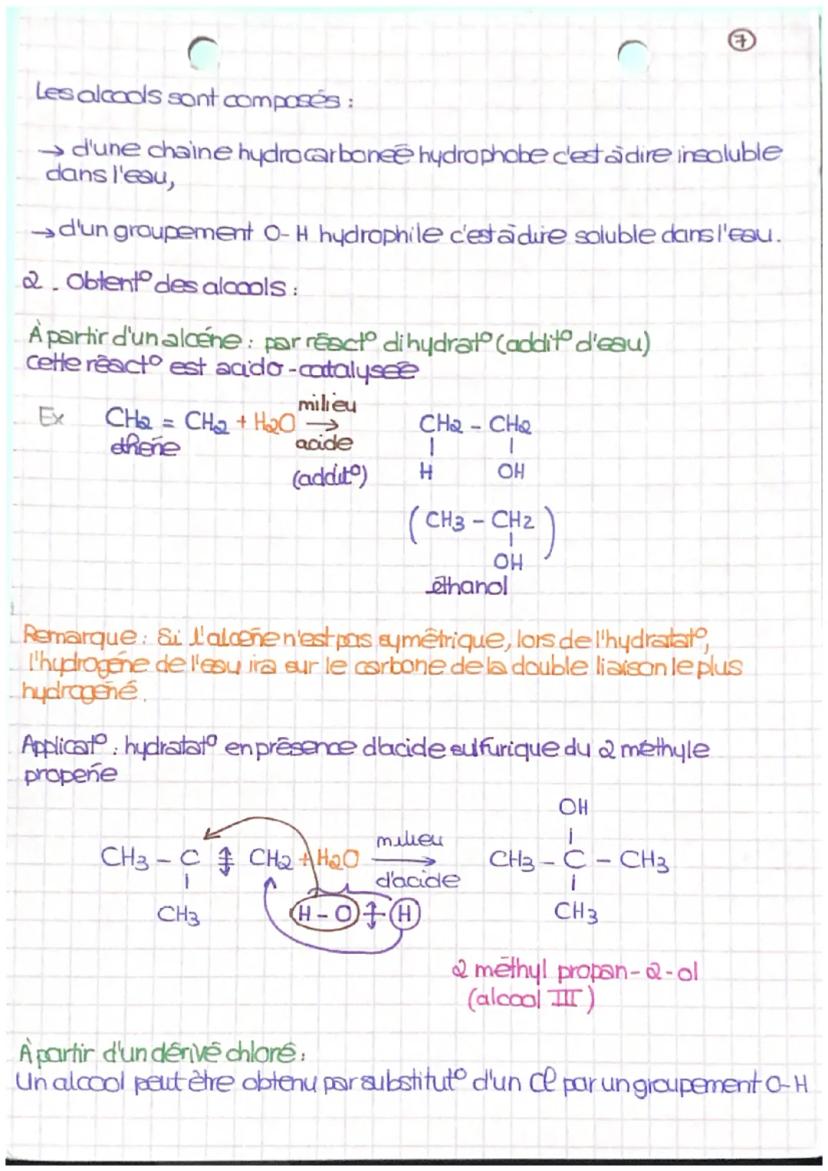 7
Les alcools sont composés :
→ d'une chaine hydrocarboneé hydrophobe c'est à dire insoluble
dans l'eau,
→ d'un groupement O-H hydrophile c'est à dire soluble dans l'eau.
2. Obtent° des alcools :
À partir d'un alcéne : par réact° dihydrat° (addit° d'eau)
cette réact° est acido-catalyseé
Ex CH2 = CH2 + H2O milieu → acide CH2 - CH2
éthene (addit°) H OH
( CH3 - CH2 )
OH
éthanol
Remarque : Si l'alcene n'est pas symétrique, lors de l'hydratat°,
l'hydrogéne de l'eau ira sur le carbone de la double liaison le plus
hydrogéné.
Applicat° : hydratat° en présence d'acide sulfurique du 2 méthyle
propene
OH
CH3 - C ‡ CH2 + H2O milieu → d'acide CH3 - C - CH3
CH3 H - O ‡ H CH3
2 méthyl propan-2-ol
(alcool III)
À partir d'un dérivé chloré :
Un alcool peut être obtenu par substitut° d'un Cl par un groupement O-H